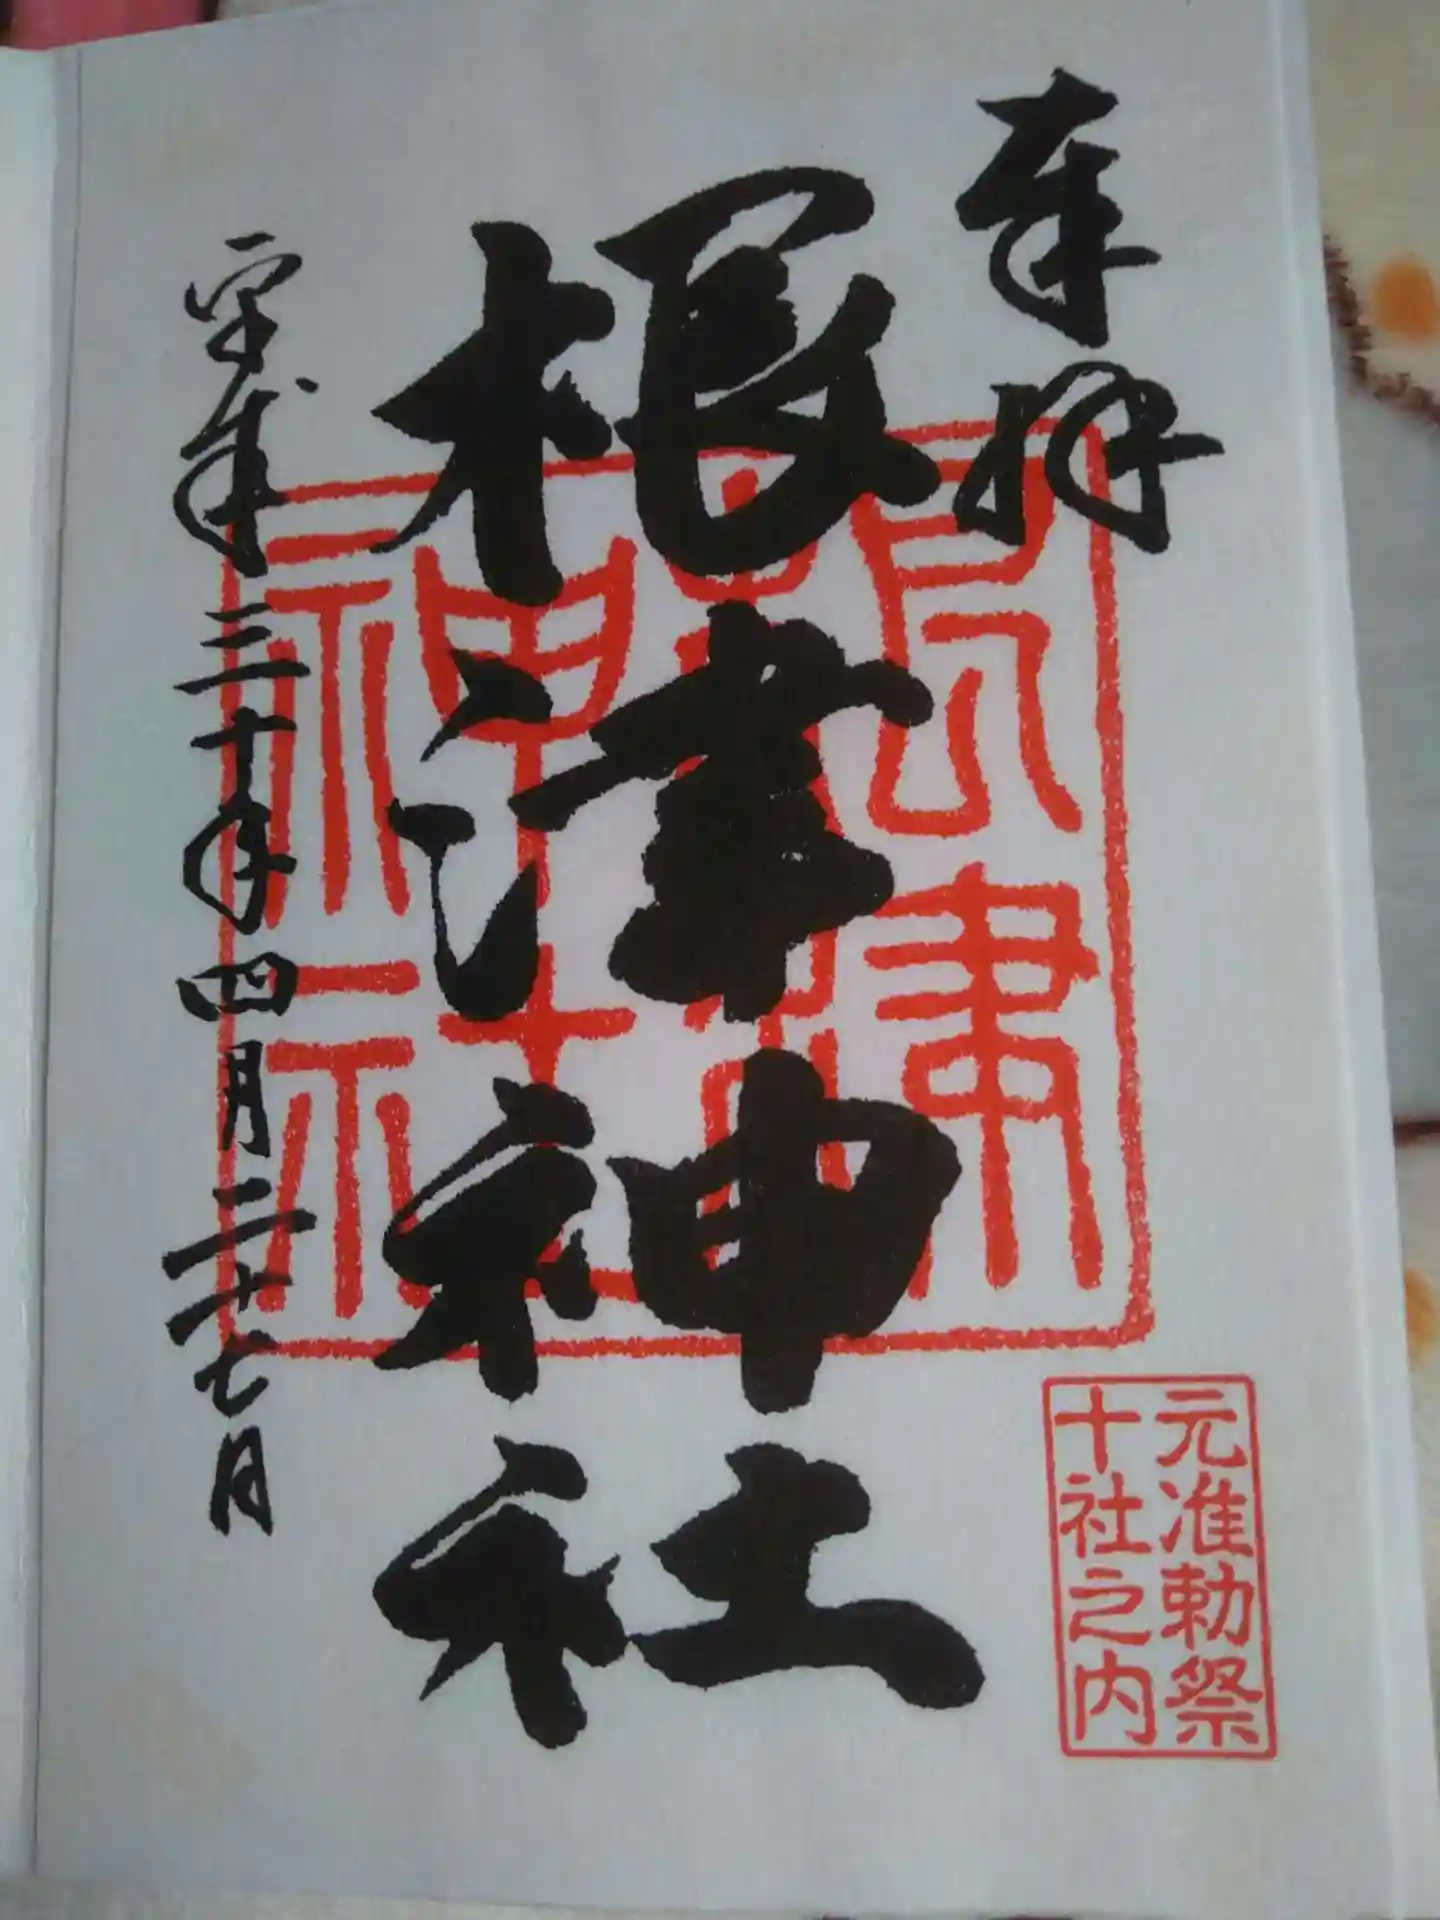 奉拝
根津神社
平成三十年四月二十七日
元准勅祭
十社之内